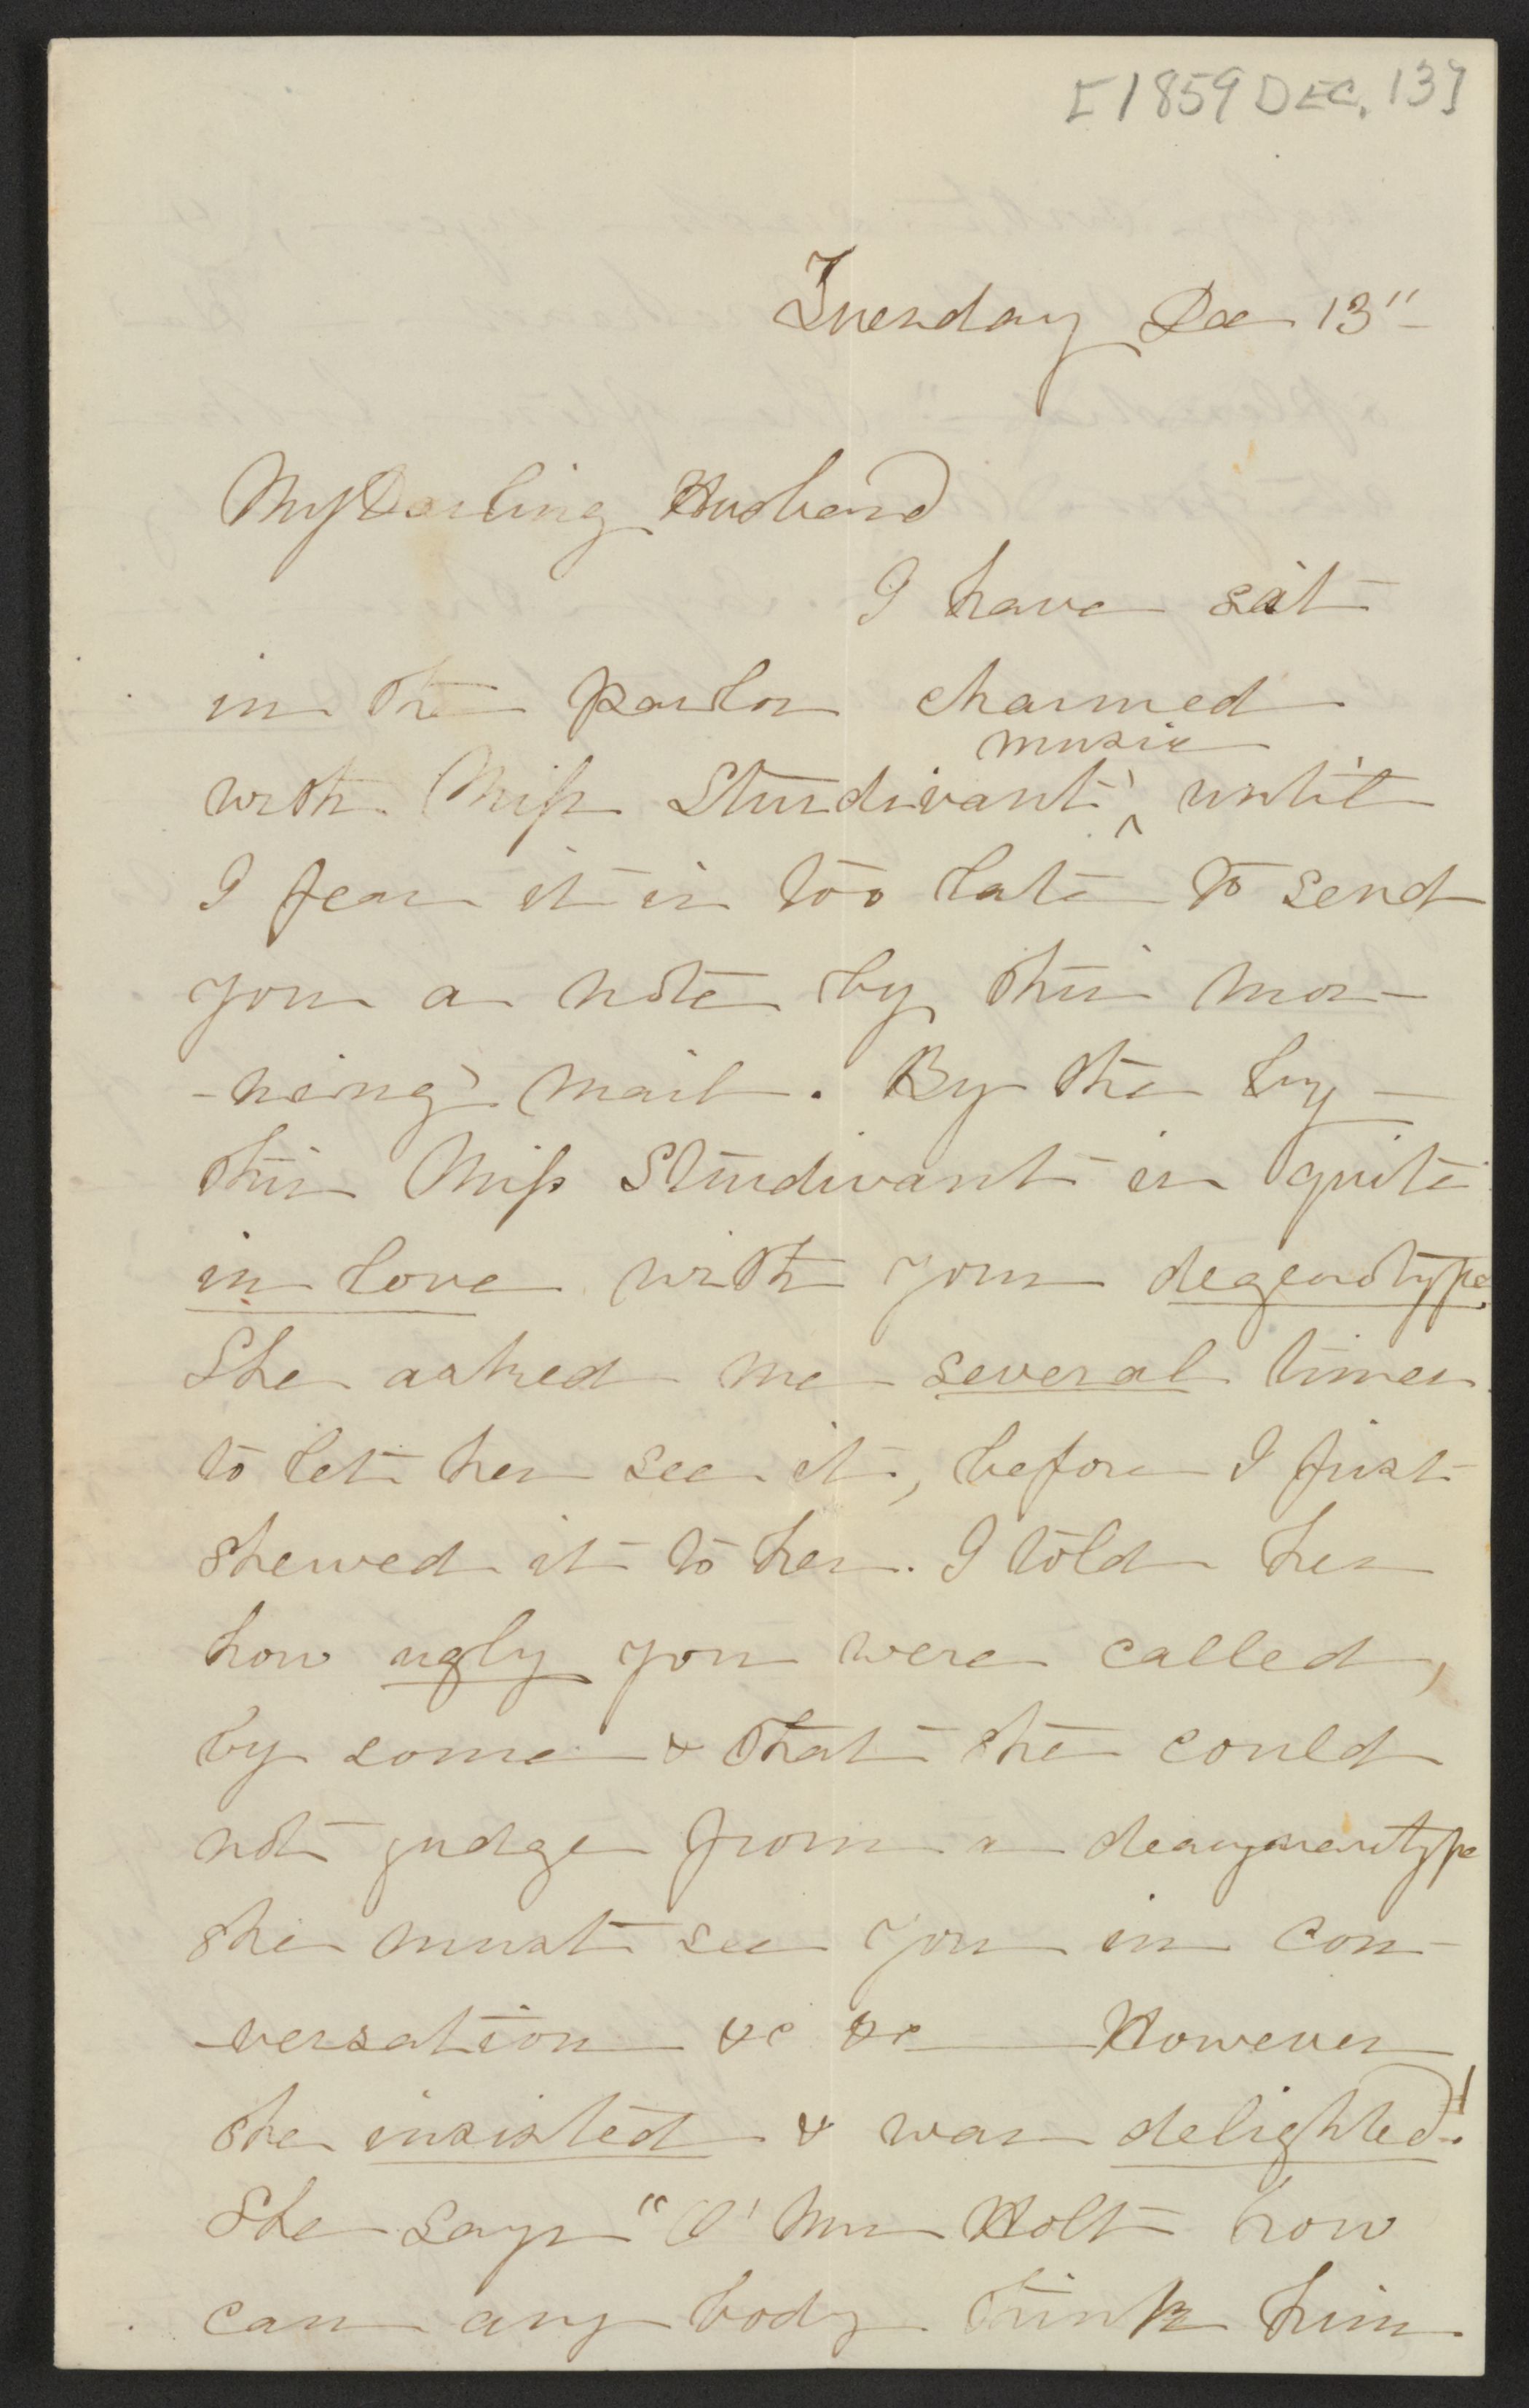 [1859 DEC. 13]
Tuesday Dec 13"
My Darling Husband
I have sat
in the parlor charmed
music
with Miss Sturdivant's ^ until
I fear it is too late to send
you a note by this mor-
-ning's mail. By the by -
this Miss Sturdivant is quite
in love with your degeurotype
She asked me several times
to let her see it, before I first
shewed it to her. I told her
how ugly you were called,
by some & that she could
not judge from a
she must see you in con-
-versation &c &c However
she insisted & was delighted!
She says "O' Mrs Holt how
can any body think him